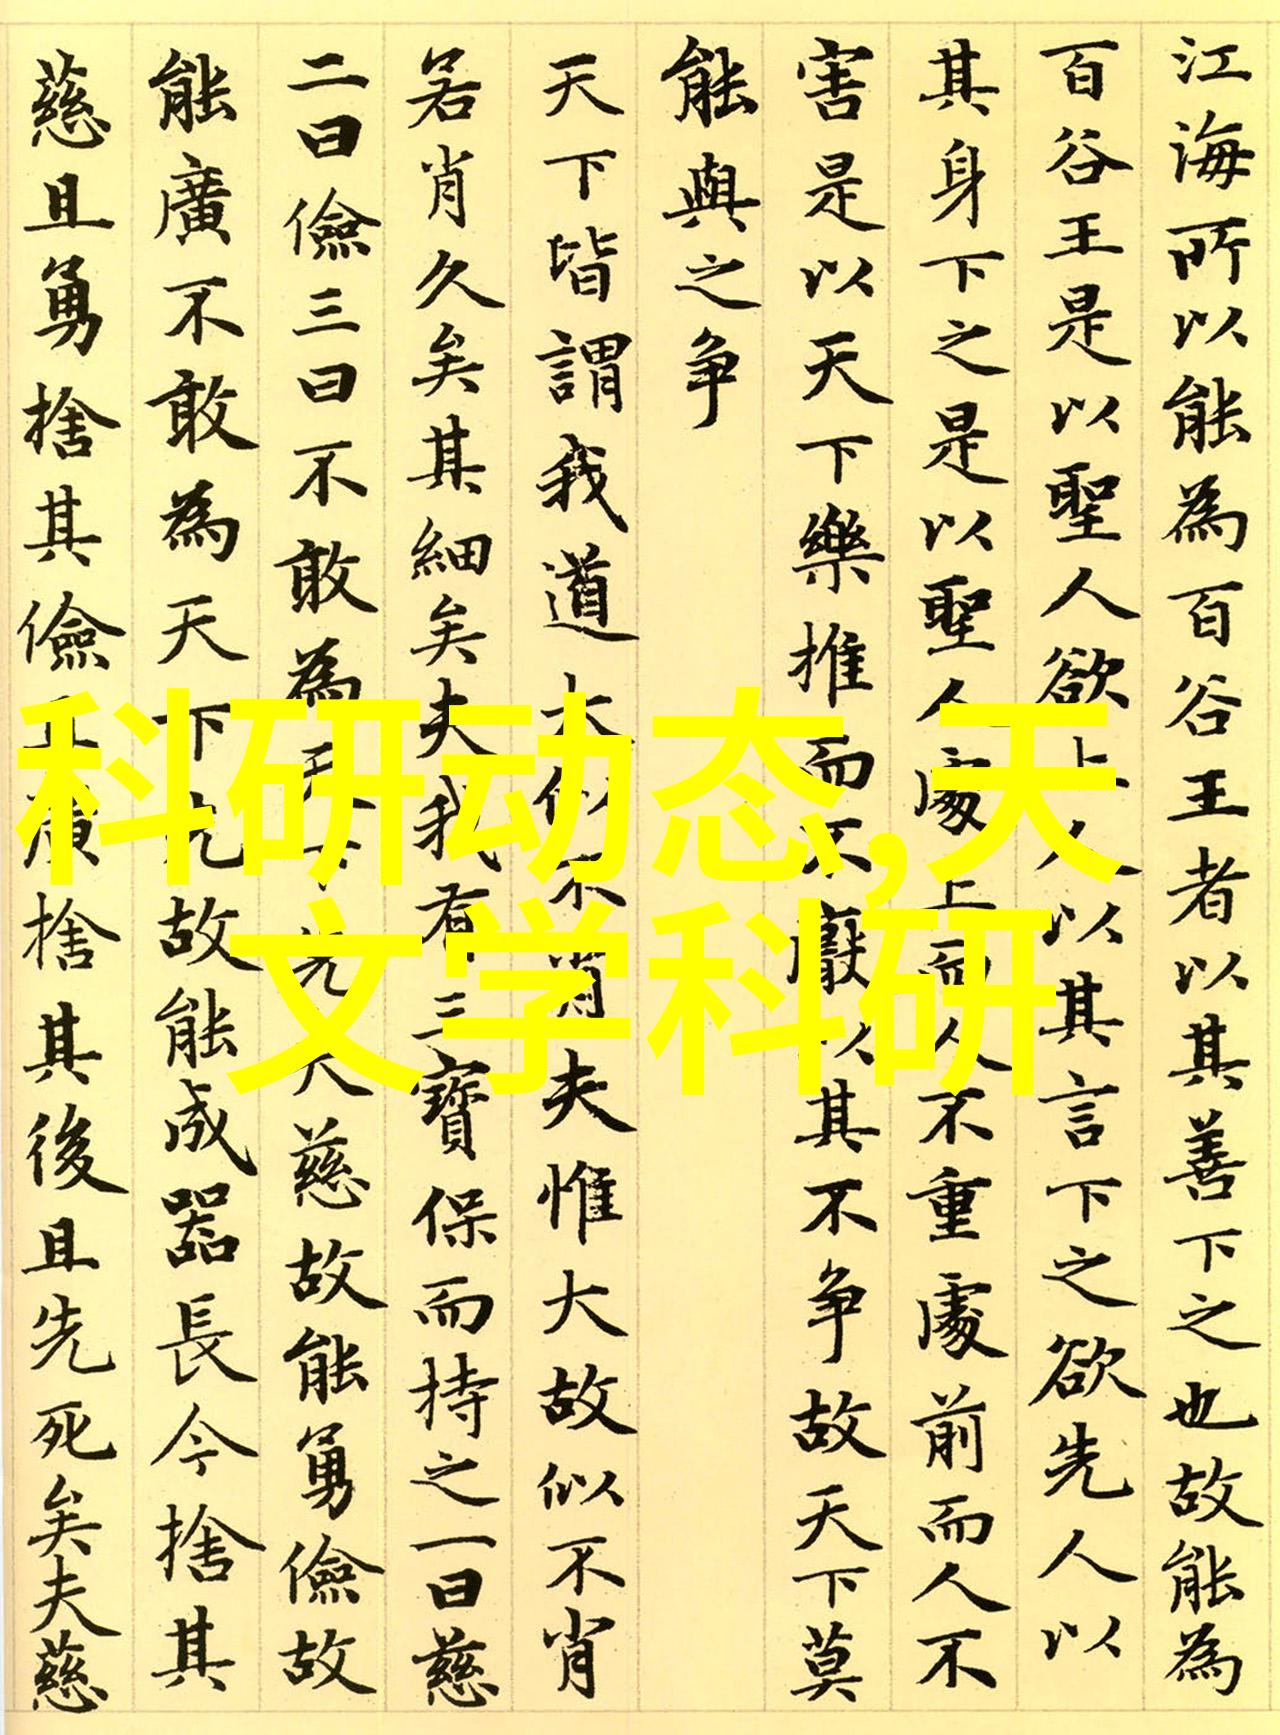 江海所以能為百谷王者以其善下之也故能為
百谷王是以聖人欲上人以其言下之欲先人以
其身下之是以聖人處上而人不重處前而人不
害是以天下樂推而不厭以其不争故天下莫
能與之争
天下皆謂我道大似不肖夫惟大故似不肖
若肖久矣其細矣夫我有三寶保而持之一曰慈
二曰儉三曰不敢為天下先夫慈故能勇儉故
能廣不敢為天下先故能成器長今捨其
慈且勇捨其儉且廣捨其後且先死矣夫慈
科研动态,天
文学科研